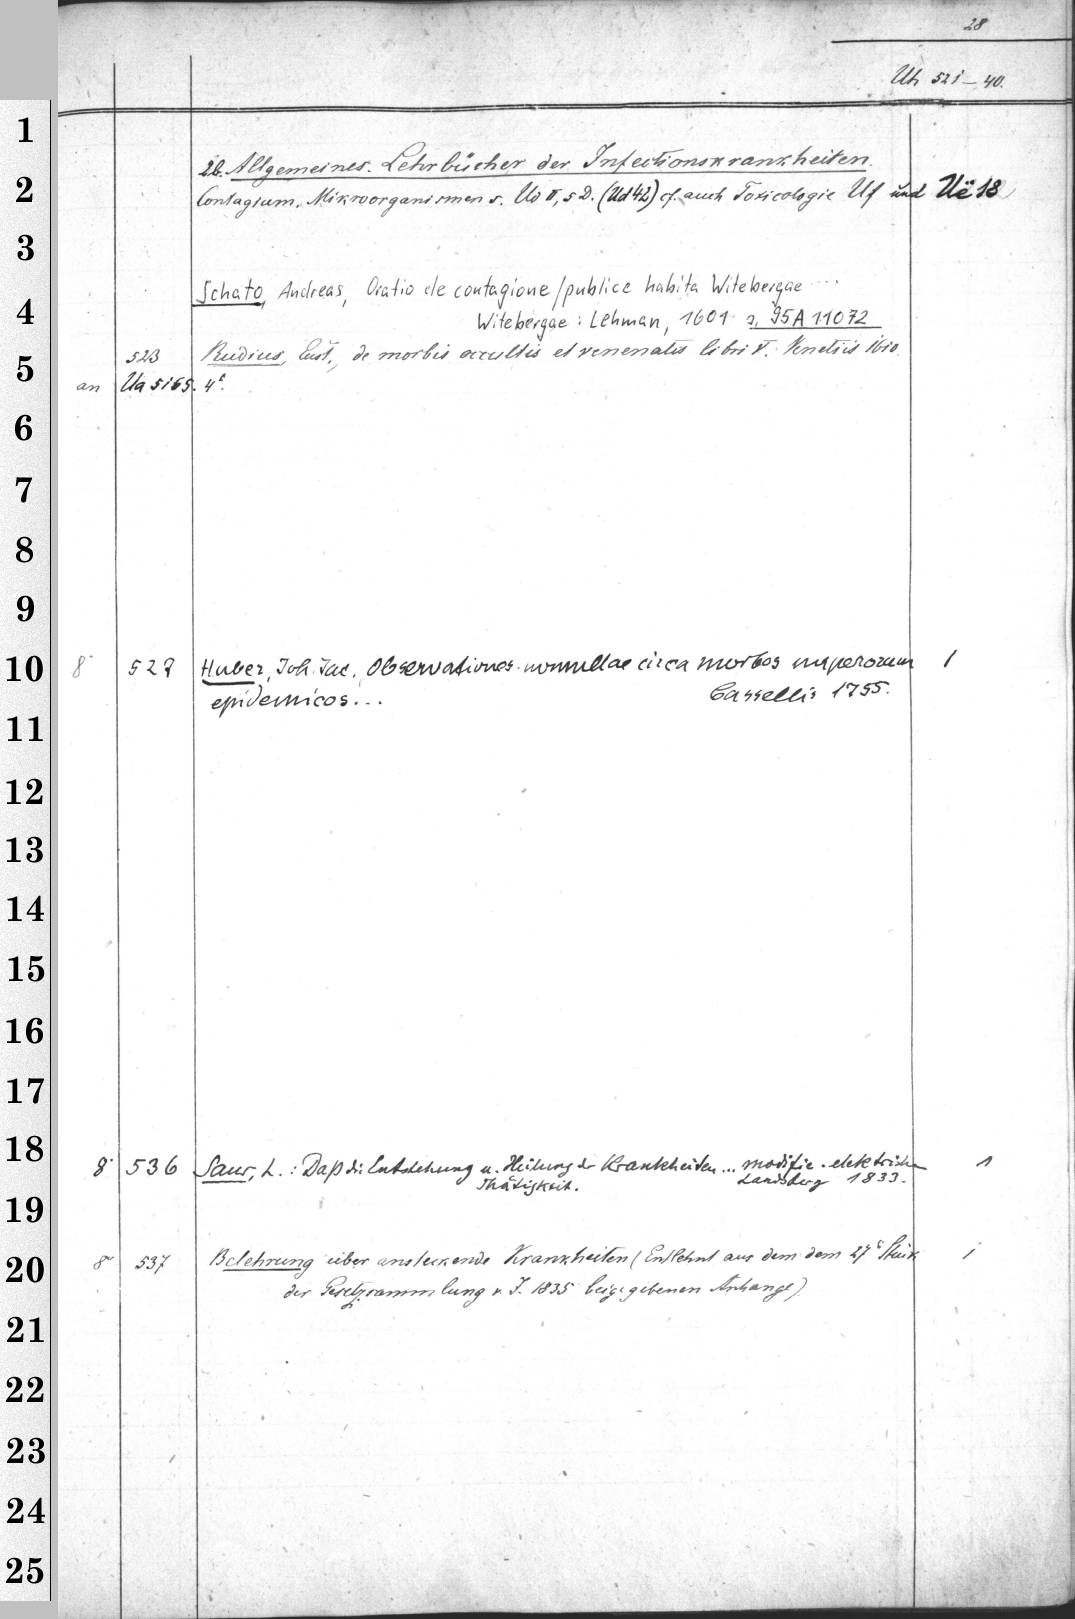 28
Uh 521-40.
2b. Allgemeines. Lehrbücher der Infectionskrankheiten.
Contagium. Mikroorganismen s. Ud II, 5 D. (Ud 42) cf. auch Toxicologie Uf und Uë 18
Schato, Andreas, Oratio de contagione/publice habita Witebergae ...
Witebergae: Lehman, 1601 s. 95A11072
523 Rudius, Eust., de morbis occultis et venenatis libri V. Venetiis 1610
an Ua 5165. 4°.
8° 527 Huber, Joh. Jac., Observationes nonnullae circa morbos nuperorum 1
epidemicos... Cassellis 1755.
8° 536 Saur, L.: Daß die Entstehung u. Heilung der Krankheiten ... modifie. elektrische 1
Thätigkeit. Landsberg 1833.
8° 537 Belehrung über ansteckende Krankheiten (Entlehnt aus dem dem 27t Stück 1
der Gesetzsammlung v. J. 1835 beigegebenen Anhange)
1
2
3
4
5
6
7
8
9
10
11
12
13
14
15
16
17
18
19
20
21
22
23
24
25